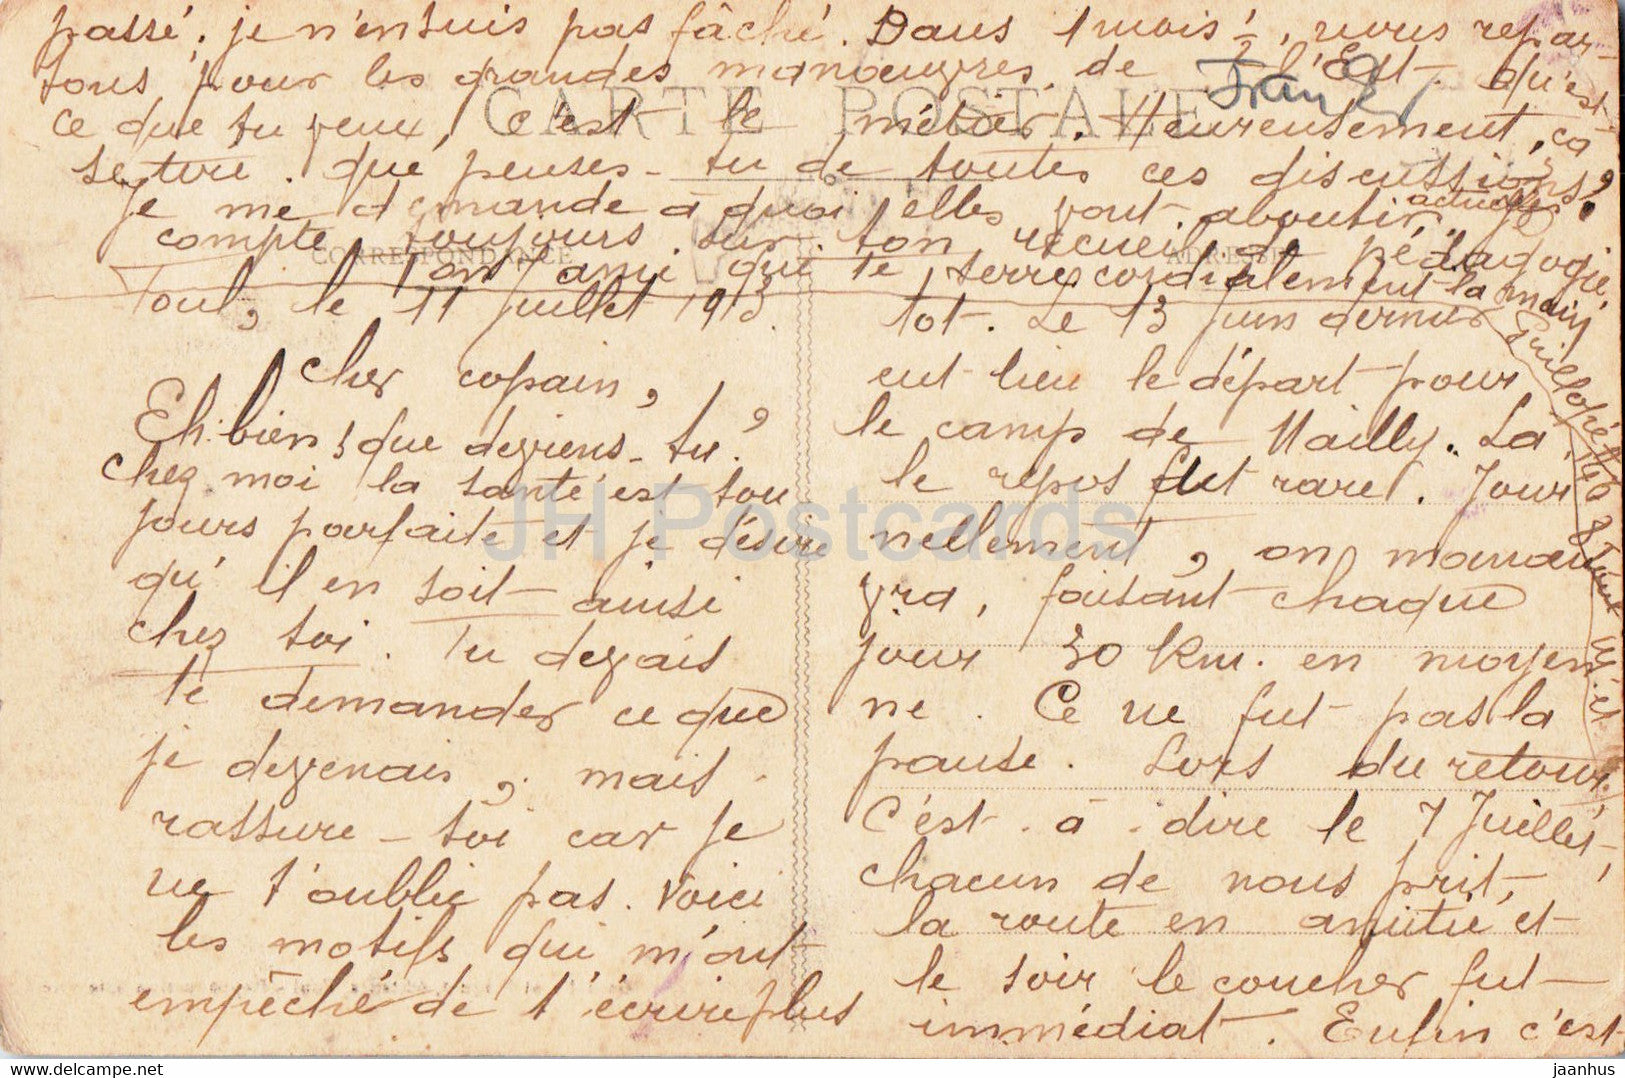 Toul, le 11 Juillet 1913.
Cher copain,
Eh! bien! que deviens-tu?
Chez moi la santé est tou
jours parfaite et je désire
qu'il en soit ainsi
chez toi. Tu devais
te demander ce que
je devenais, mais
rassure-toi car je
ne t'oublie pas. Voici
les motifs qui m'ont
empêché de t'écrire plus
tot. Le 13 Juin dernier
eut lieu le départ pour
le camp de Mailly. La
le repos fut rare. Jour
nellement, on manœu
vra, faisant chaque
jour 30 km. en moyen
ne. Ce ne fut pas la
pause. Lors du retour
c'est-à-dire le 7 Juillet,
chacun de nous prit
la route en amitié et
le soir le coucher fut
immédiat. Enfin c'est
passé; je n'en suis pas fâché. Dans 1 mois ½, nous repar-
tons pour les grandes manœuvres de l'Est. qu'est-
ce que tu veux, c'est le métier. Heureusement, ça
se tire. Que penses-tu de toutes ces discussions
actuelles?
Je me demande à quoi elles vont aboutir. Je
compte toujours sur ton recueil de pédagogie.
Ton ami qui te serre cordialement la main
CARTE POSTALE
CORRESPONDANCE
ADRESSE
JH Postcards
jaanhus